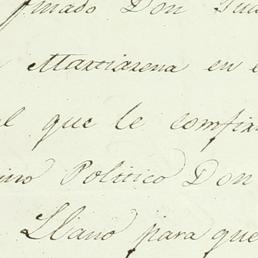 finado Don Jua
Martiarena en e
l que le comfir
ino Politico Don
Llano para que